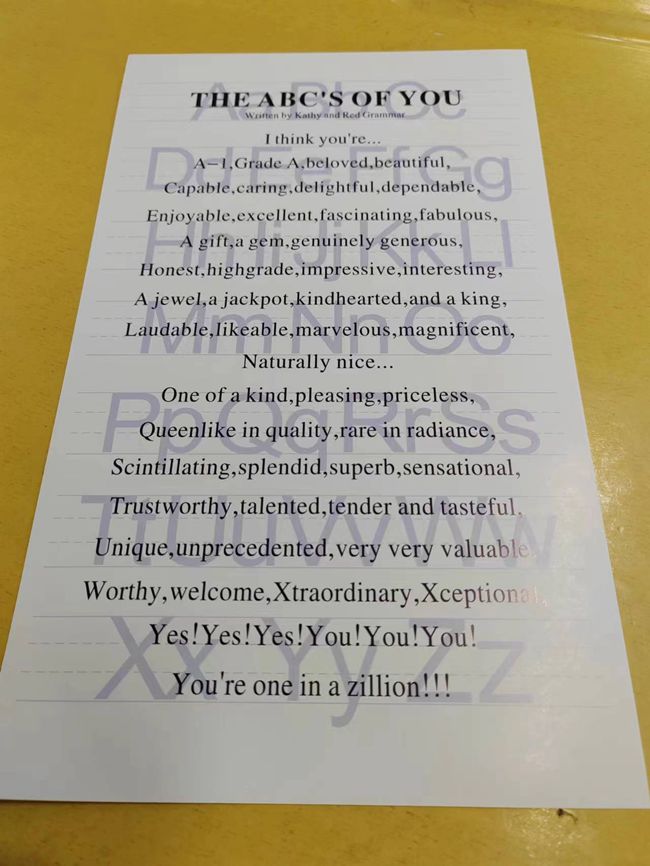 THE ABC'S OF YOU
Written by Kathy and Red Grammar
I think you're...
A-1,Grade A,beloved,beautiful,
Capable,caring,delightful,dependable,
Enjoyable,excellent,fascinating,fabulous,
A gift,a gem,genuinely generous,
Honest,highgrade,impressive,interesting,
A jewel,a jackpot,kindhearted,and a king,
Laudable,likeable,marvelous,magnificent,
Naturally nice...
One of a kind,pleasing,priceless,
Queenlike in quality,rare in radiance,
Scintillating,splendid,superb,sensational,
Trustworthy,talented,tender and tasteful,
Unique,unprecedented,very very valuable,
Worthy,welcome,Xtraordinary,Xceptional,
Yes!Yes!Yes!You!You!You!
You're one in a zillion!!!
Aa Bb Cc
Dd Ee Ff Gg
Hh Ii Jj Kk Ll
Mm Nn Oo
Pp Qq Rr Ss
Tt Uu Vv Ww
Xx Yy Zz